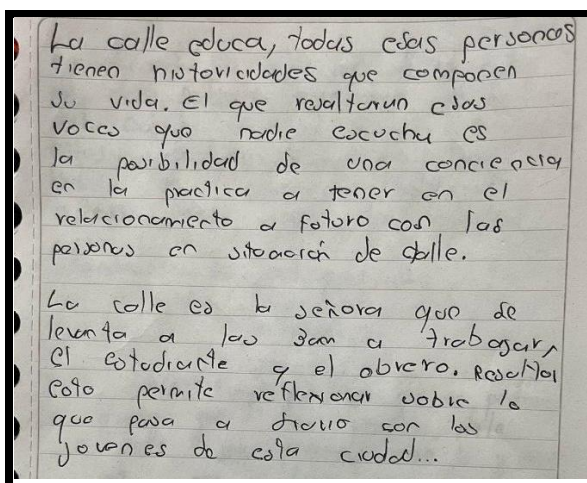 La calle educa, todas esas personas
tienen historicidades que componen
su vida. El que resaltaran esas
voces que nadie escucha es
la posibilidad de una conciencia
en la practica a tener en el
relacionamiento a futuro con las
personas en situación de calle.
La calle es la señora que se
levanta a las 3am a trabajar,
el estudiante y el obrero. Resaltar
esto permite reflexionar sobre lo
que pasa a diario con los
jovenes de esta ciudad...